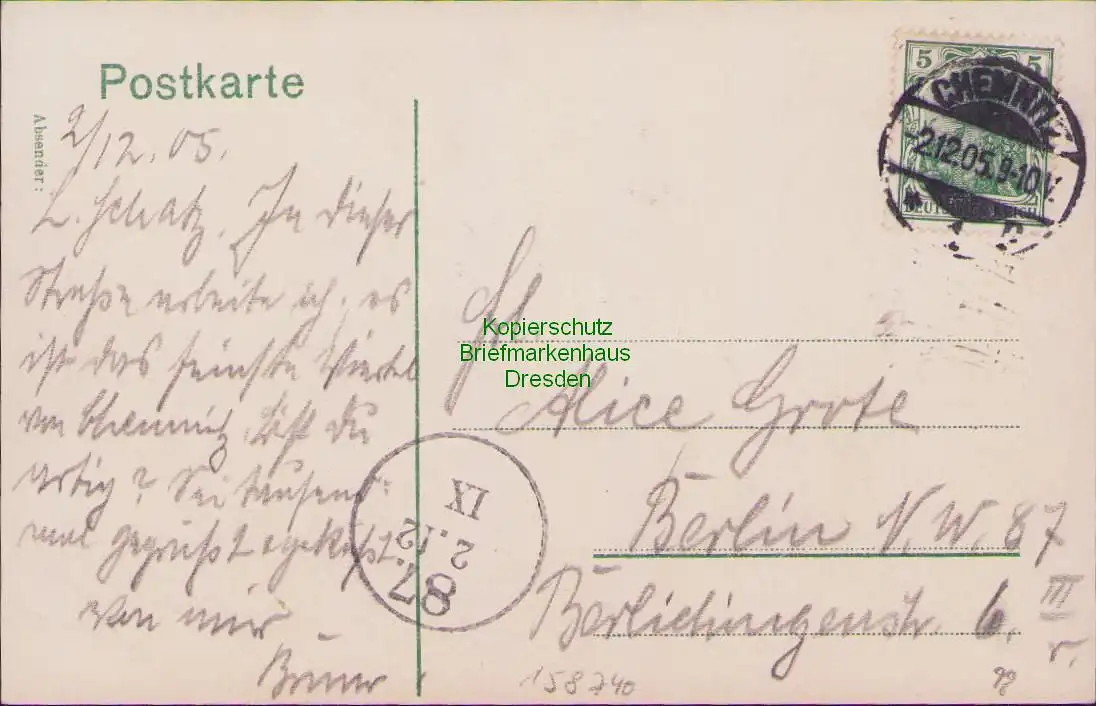 Postkarte
Absender:
2/12. 05.
L. Schatz, In dieser
Straße arbeite ich, es
ist das feinste Viertel
von Chemnitz. Bist du
artig? Sei tausend-
mal gegrüßt u geküßt
von mir
5 5
CHEMNITZ
-2.12.05.9-10V.
DEUTSCHES REICH
Frl.
Alice Grote
Berlin N.W. 87
Berlichingenstr. 6. III r.
Kopierschutz
Briefmarkenhaus
Dresden
IX
2.12.
87
158740
98